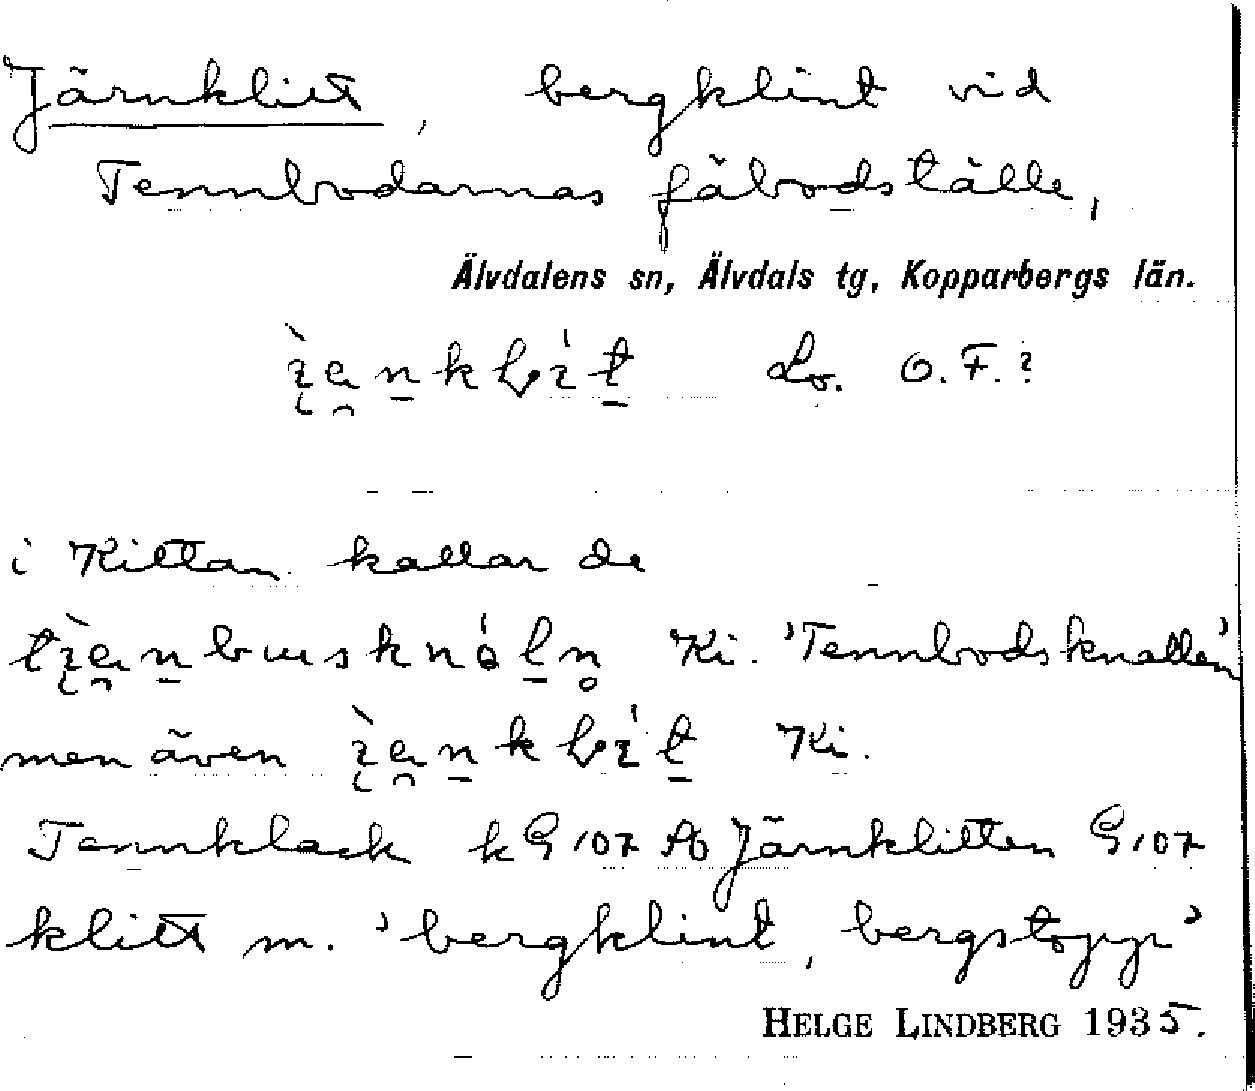 Järnklitt, bergklint vid
Tennbodarnas fäbodställe,
Älvdalens sn, Älvdals tg, Kopparbergs län.
Lo. O.F.?
i Kittan kallar de
Ki. 'Tennbodsknallen'
men även Ki.
Tennklack kG 107 Ab Järnklitten G 107
klitt m. 'bergklint, bergstopp'
HELGE LINDBERG 1935.